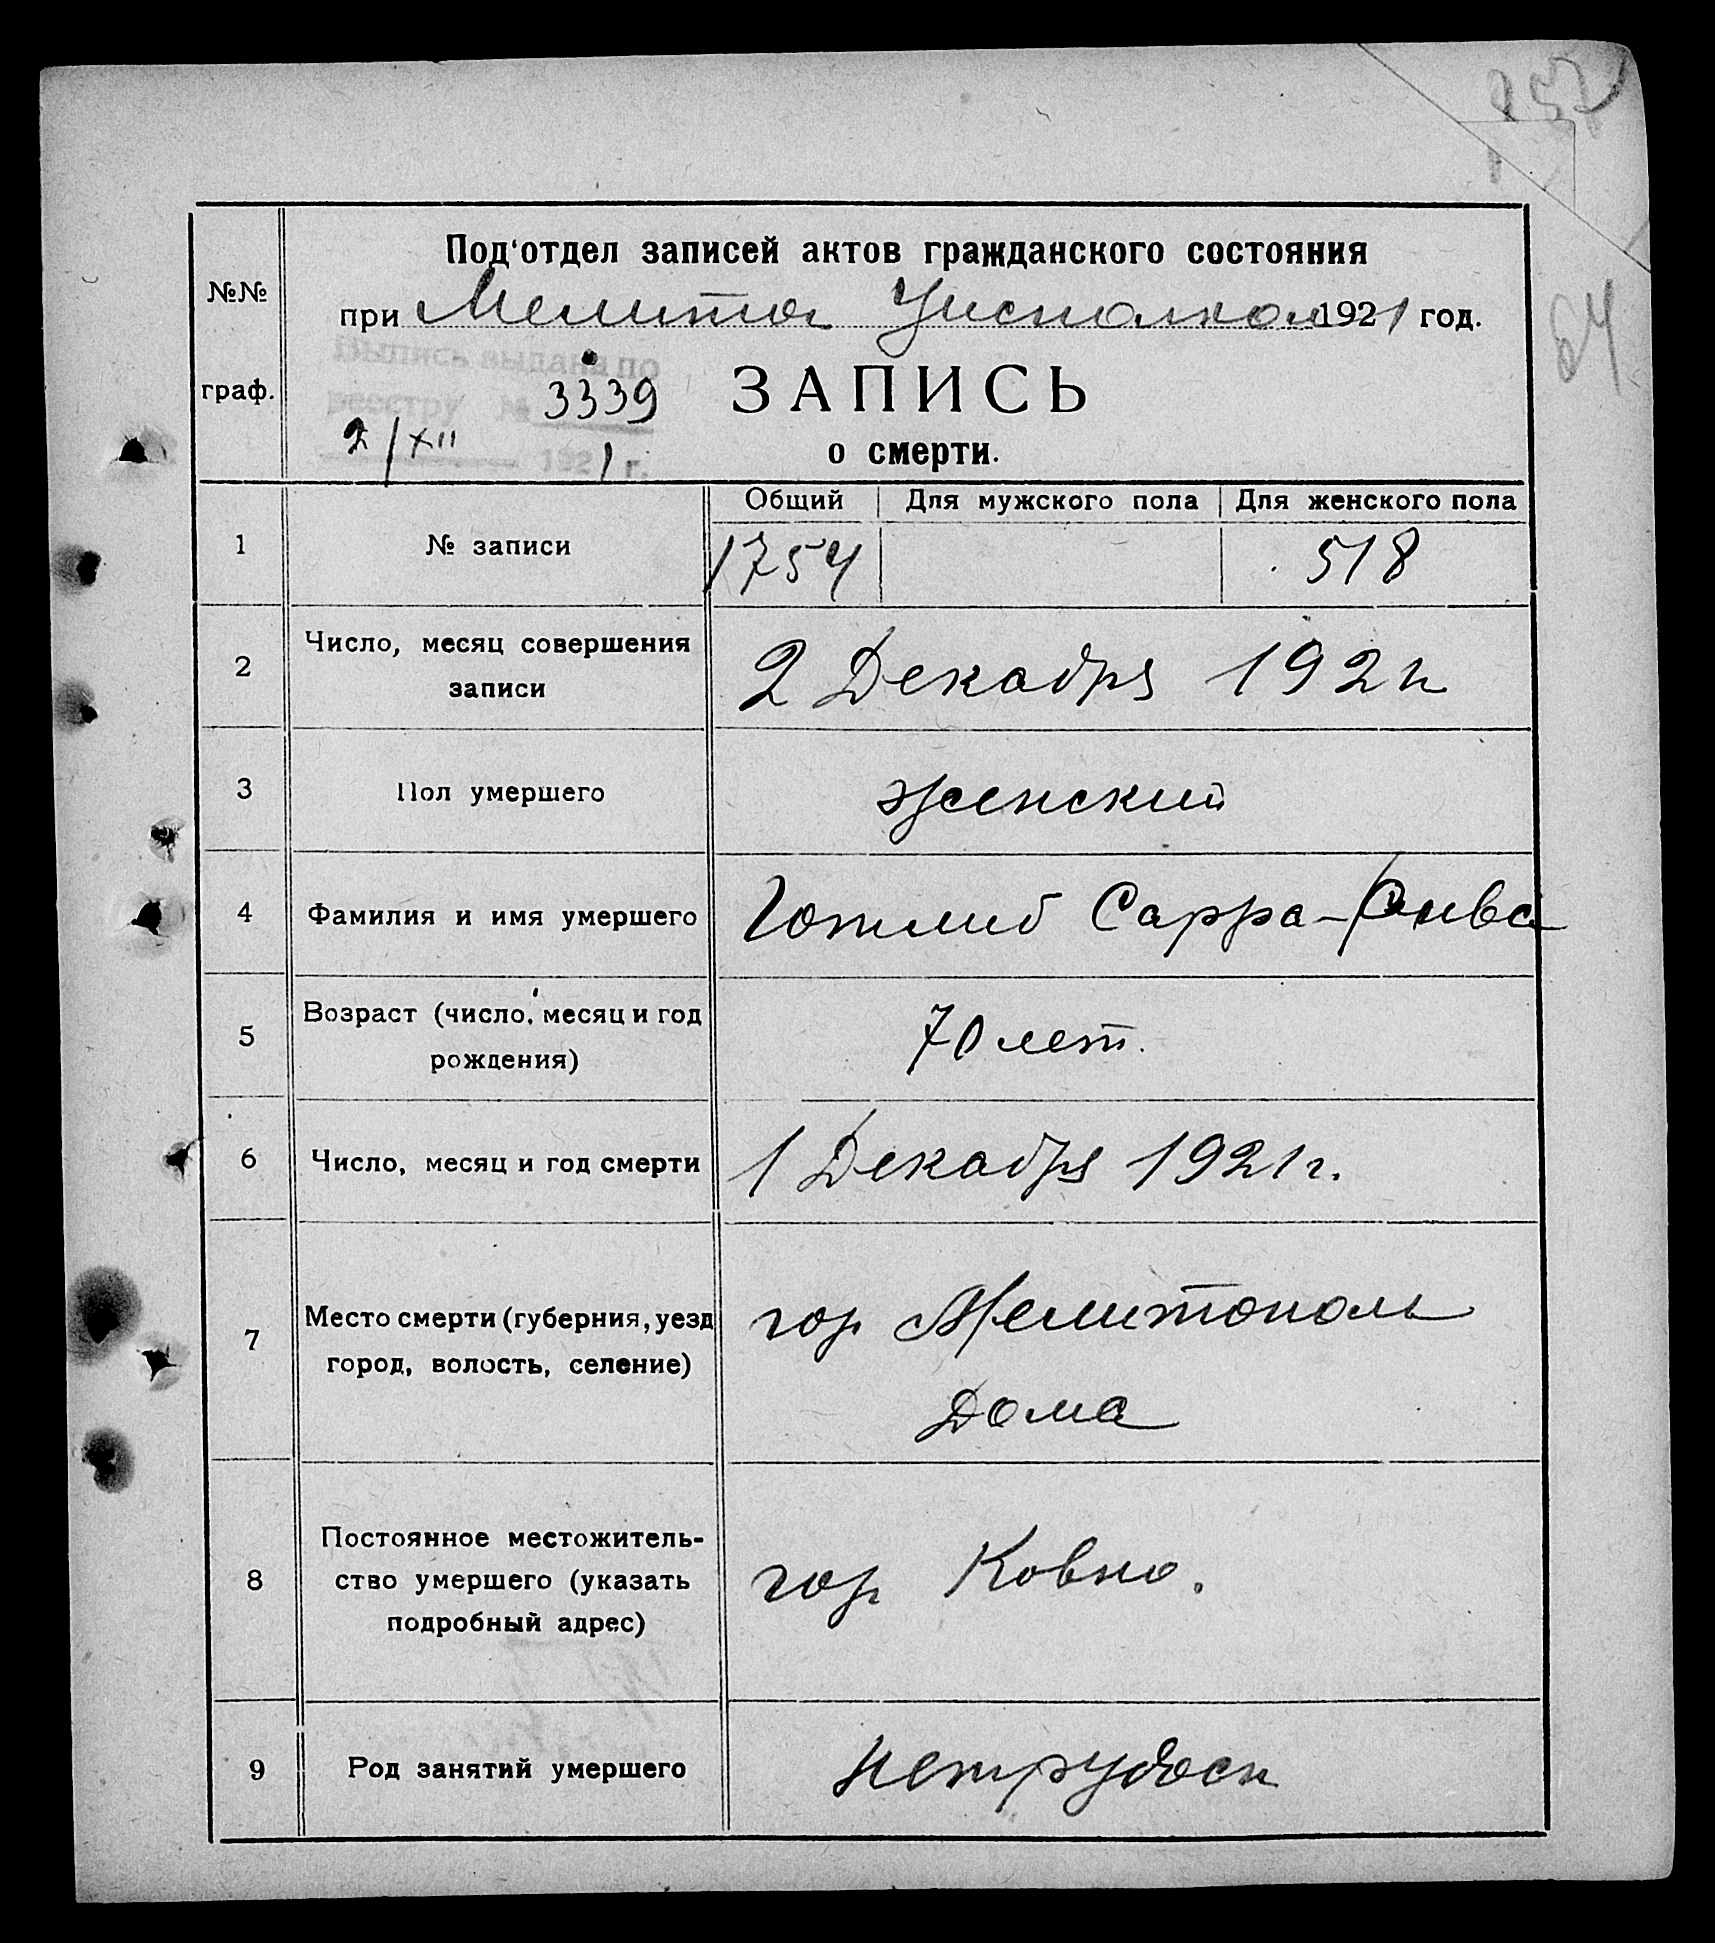 157
64
Под'отдел записей актов гражданского состояния
при Мелитоп Уисполком 1921 год.
Выпись выдана по
реестру № 3339
2/XII 1921 г.
№№
граф.
ЗАПИСЬ
о смерти.
Общий Для мужского пола Для женского пола
1 № записи 1754 518
2 Число, месяц совершения
записи
2 Декабря 1921г
3 Пол умершего женский
4 Фамилия и имя умершего Готлиб Сарра-Рива
5 Возраст (число, месяц и год
рождения)
70 лет.
6 Число, месяц и год смерти 1 Декабря 1921г.
7 Место смерти (губерния, уезд
город, волость, селение)
гор Мелитополь
Дома
8 Постоянное местожитель-
ство умершего (указать
подробный адрес)
гор Ковно.
9 Род занятий умершего нетрудосп